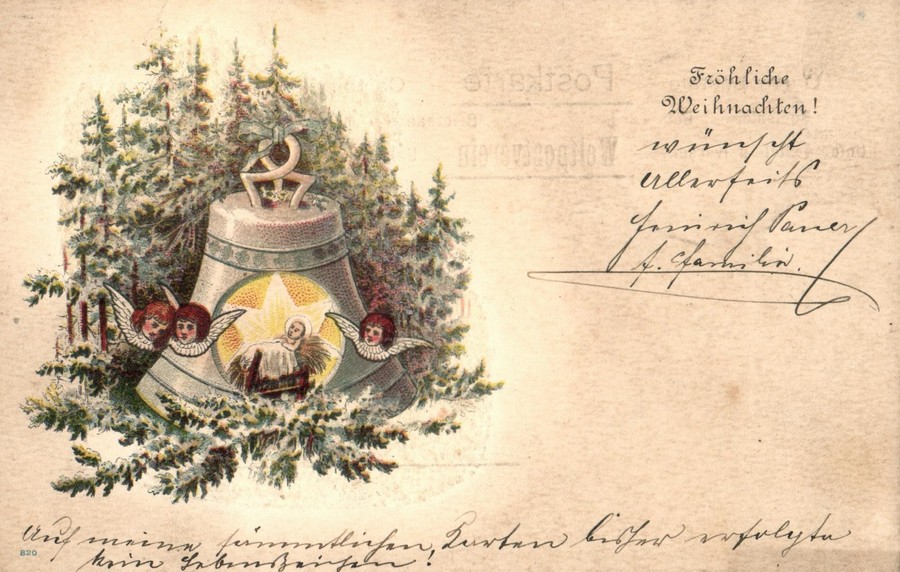 Fröhliche
Weihnachten!
wünscht
Allerseits
Heinrich
u. Familie.
Auf meine sämmtlichen Karten bisher erfolgte
kein Lebenszeichen!
820
Postkarte
Weltpostverein